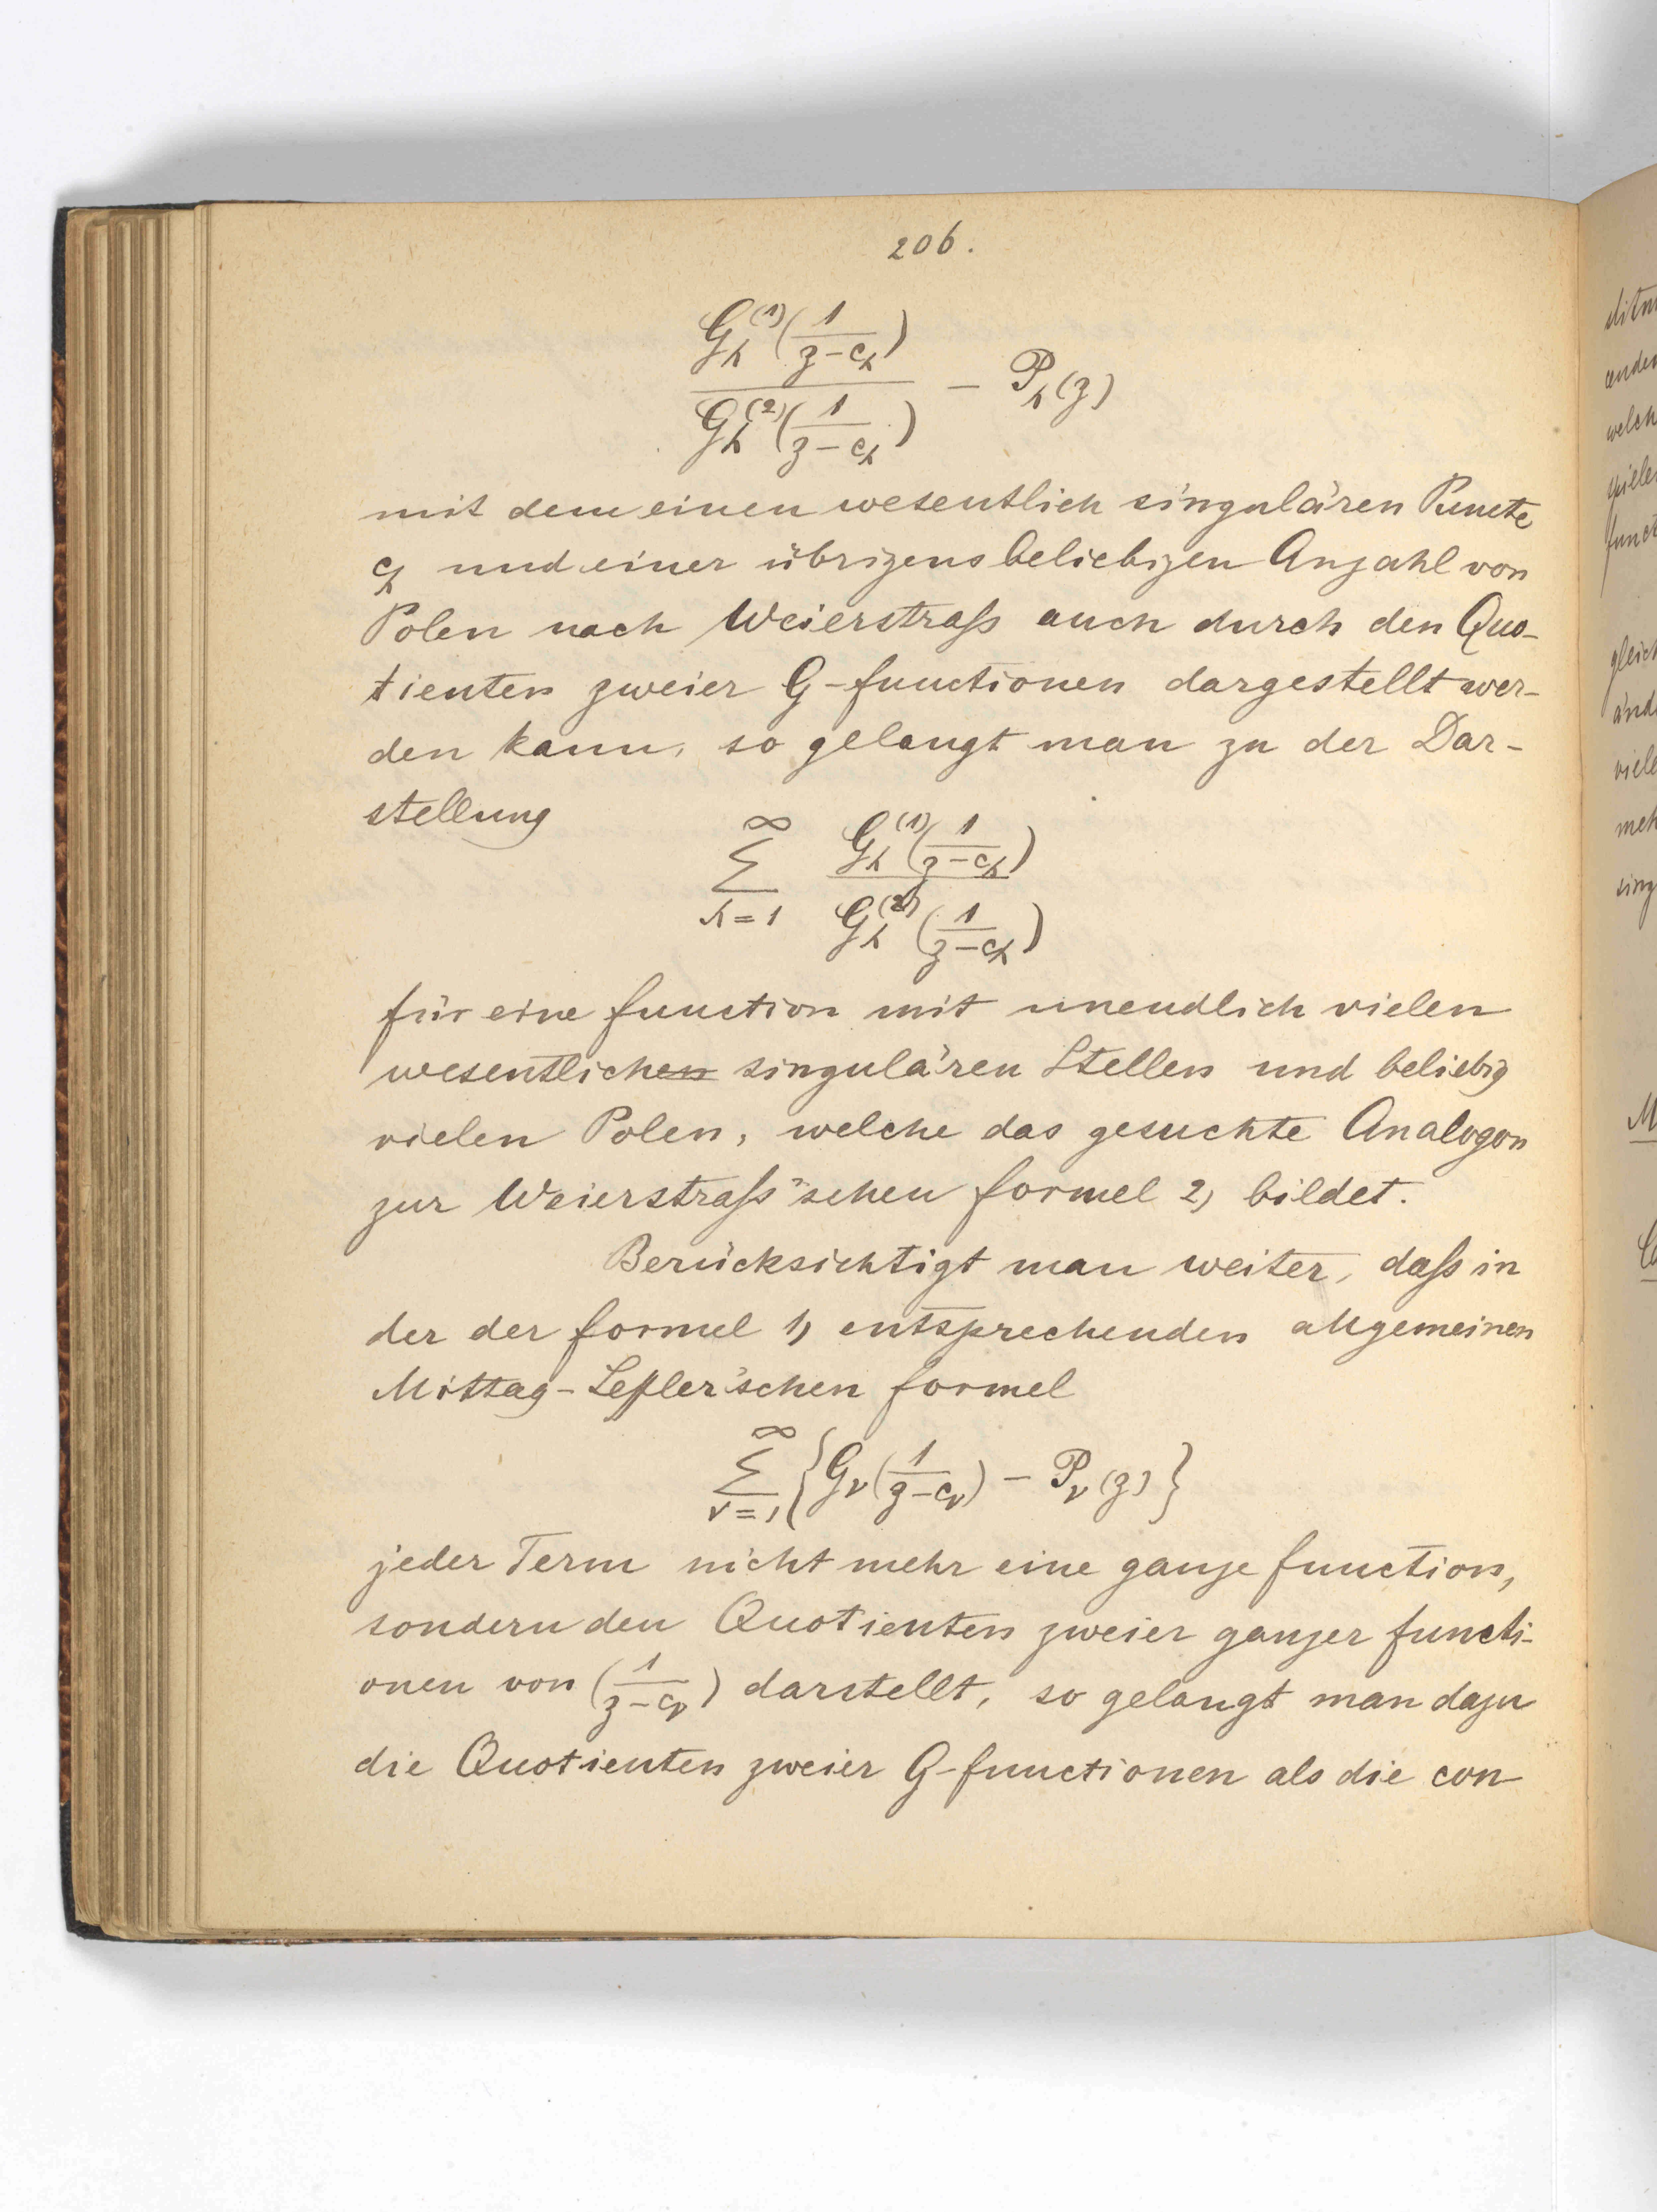 206.
$$\frac{G_h^{(1)}\left(\frac{1}{z-c_h}\right)}{G_h^{(2)}\left(\frac{1}{z-c_h}\right)} - P_h(z)$$
mit dem einen wesentlich singulären Puncte
$c_h$ und einer übrigens beliebigen Anzahl von
Polen nach Weierstraß auch durch den Quo-
tienten zweier G-functionen dargestellt wer-
den kann, so gelangt man zu der Dar-
stellung
$$\sum_{h=1}^{\infty} \frac{G_h^{(1)}\left(\frac{1}{z-c_h}\right)}{G_h^{(2)}\left(\frac{1}{z-c_h}\right)}$$
für eine function mit unendlich vielen
wesentlich~~en~~ singulären Stellen und beliebig
vielen Polen, welche das gesuchte Analogon
zur Weierstraß'schen formel 2) bildet.
Berücksichtigt man weiter, daß in
der der formel 1) entsprechenden allgemeinen
Mittag-Lefler'schen formel
$$\sum_{\nu=1}^{\infty} \left\{ G_\nu\left(\frac{1}{z-c_\nu}\right) - P_\nu(z) \right\}$$
jeder Term nicht mehr eine ganze function,
sondern den Quotienten zweier ganzer functi-
onen von $\left(\frac{1}{z-c_\nu}\right)$ darstellt, so gelangt man dazu
die Quotienten zweier G-functionen als die con-